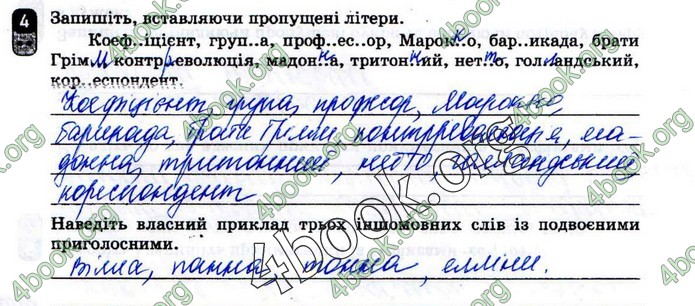 4 Запишіть, вставляючи пропущені літери.
Коеф..іцієнт, груп..а, проф..ес..ор, Марокко, бар..икада, брати
Грімм, контрреволюція, мадонна, тритонний, нетто, голландський,
кор..еспондент.
Коефіцієнт, група, професор, Марокко,
барикада, брати Грімм, контрреволюція, ма-
донна, тритонний, нетто, голландський,
кореспондент
Наведіть власний приклад трьох іншомовних слів із подвоєними
приголосними.
Вілла, панна, тонна, елліни.
4book.org